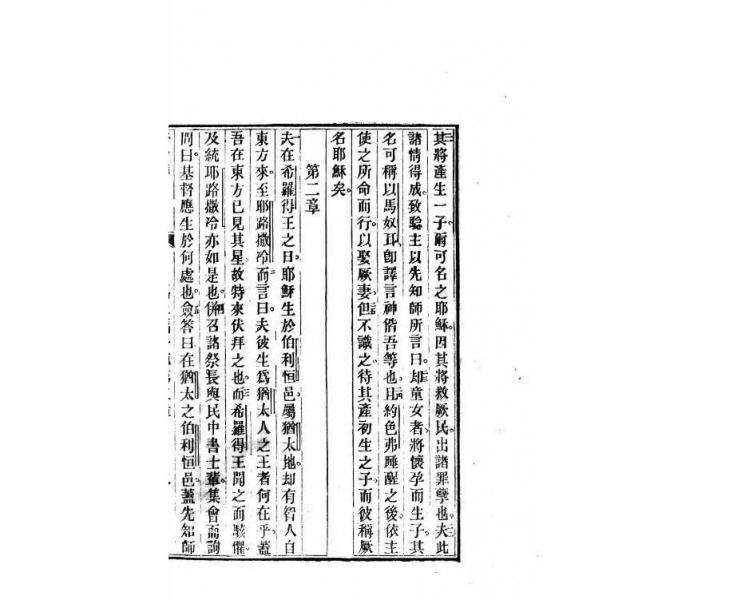 其將產生一子爾可名之耶穌因其將救厥民出諸罪孽也夫此
諸情得成致驗主以先知師所言曰却童女者將懷孕而生子其
名可稱以馬奴耳卽譯言神偕吾等也且約色弗睡醒之後依主
使之所命而行以娶厥妻但不識之待其產初生之子而彼稱厥
名耶穌矣
第二章
夫在希羅得王之日耶穌生於伯利恒邑屬猶太地却有智人自
東方來至耶路撒冷而言曰夫彼生為猶太人之王者何在乎蓋
吾在東方已見其星故特來伏拜之也而希羅得王聞之而駭懼
及統耶路撒冷亦如是也併召諸祭長與民中書士輩集會而詢
問曰基督應生於何處也僉答曰在猶太之伯利恒邑蓋先知師